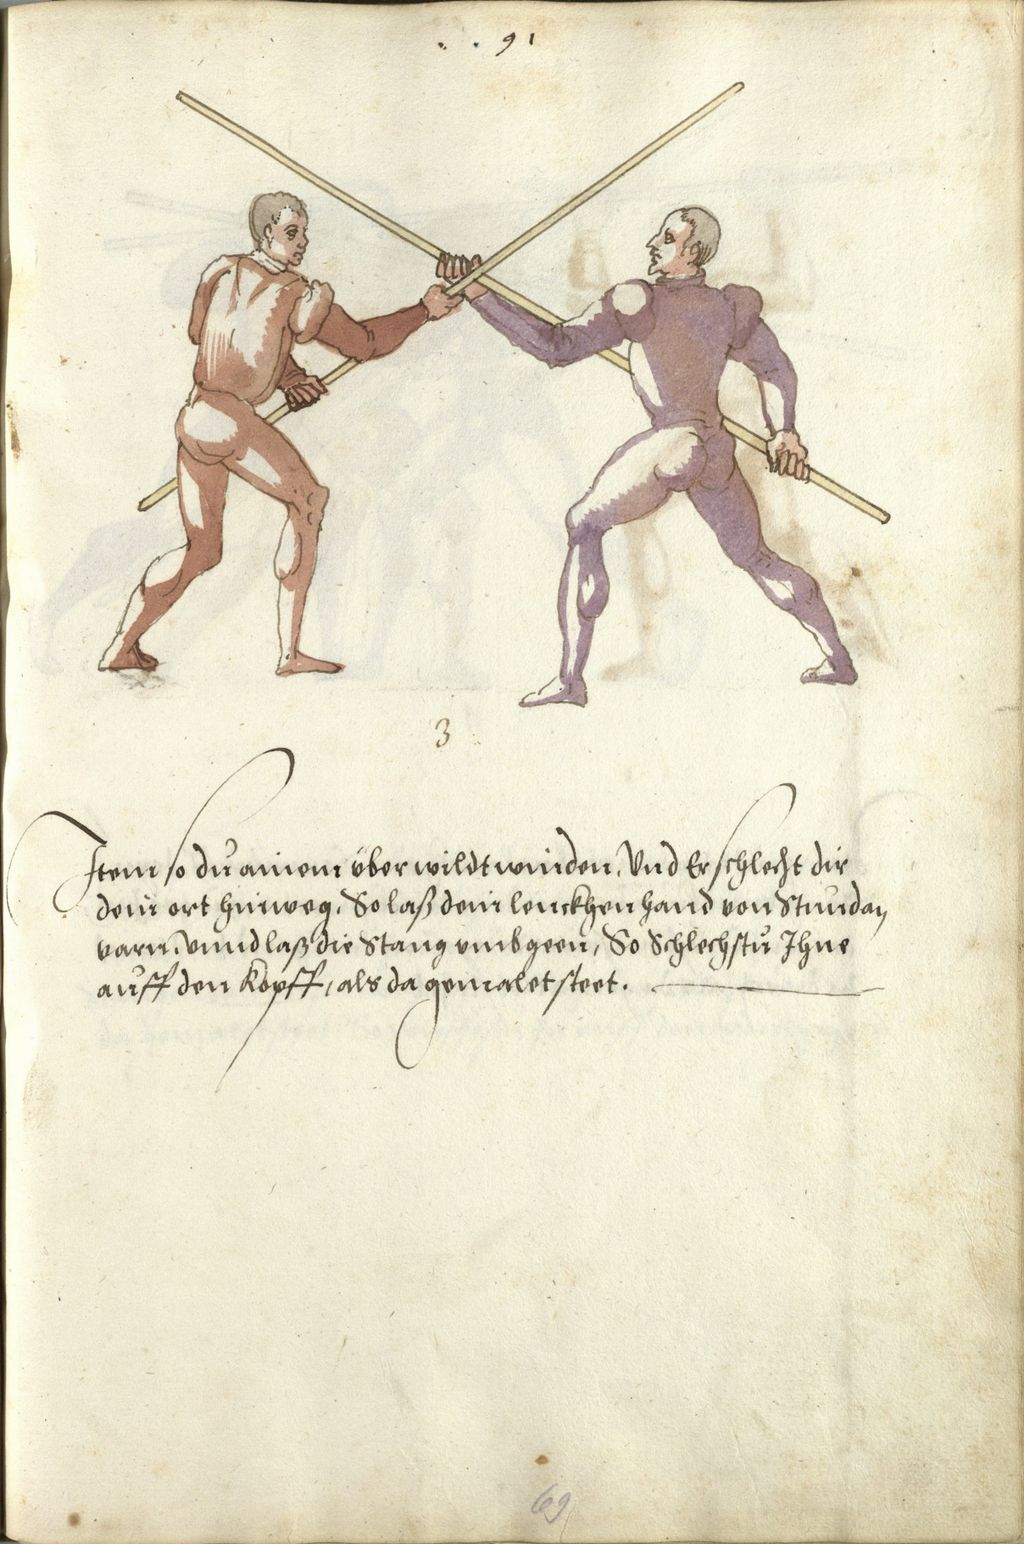 91
3
Item so dŭ ainem über wildt winden. Vnd Er schlecht dir
dein ort hinweg. So laß dein lenckhen hand von Stundan
varn. vnnd laß die Stang vmbgeen, So Schlechstŭ Ihne
auff den Kopff, als da gemalet steet.
69